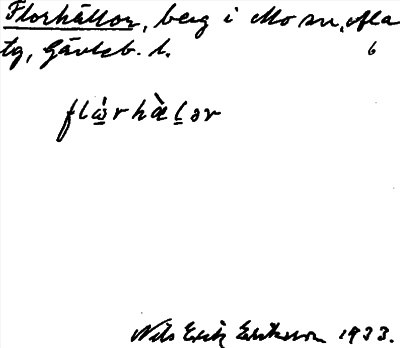 Florhällor, berg i Mo sn, Ala
tg, Gävleb. l.
6
flὼ̲rhàl̲ər
Nils Erik Eriksson 1933.